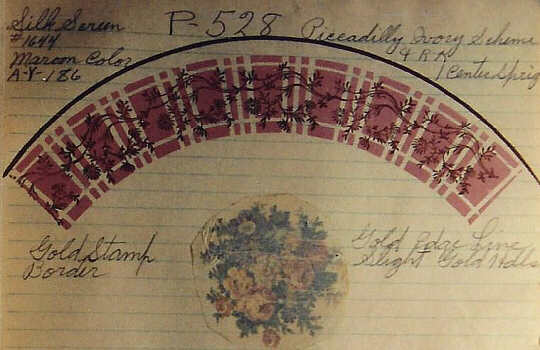 Silk Screen
#1644
Maroon Color
A-V-186
P-528
Piccadilly Ivory Scheme
4 R K
1 Center Sprig
Gold Stamp
Border
Gold Edge Line
Slight Gold Hdls